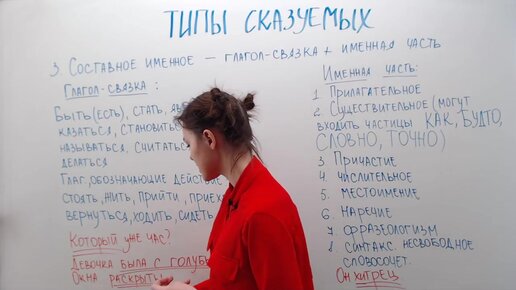 ТИПЫ СКАЗУЕМЫХ
3. СОСТАВНОЕ ИМЕННОЕ — ГЛАГОЛ-СВЯЗКА + ИМЕННАЯ ЧАСТЬ
ГЛАГОЛ-СВЯЗКА:
БЫТЬ (ЕСТЬ), СТАТЬ,
КАЗАТЬСЯ, СТАНОВИТЬСЯ
НАЗЫВАТЬСЯ, СЧИТАТЬСЯ
ДЕЛАТЬСЯ
ГЛАГ., ОБОЗНАЧАЮЩИЕ ДЕЙСТВИЕ
СТОЯТЬ, ЖИТЬ, ПРИЙТИ,
ВЕРНУТЬСЯ, ХОДИТЬ, СИДЕТЬ
КОТОРЫЙ УЖЕ ЧАС?
ДЕВОЧКА БЫЛА С
ОКНА РАСКРЫТЫ
ИМЕННАЯ ЧАСТЬ:
1 ПРИЛАГАТЕЛЬНОЕ
2. СУЩЕСТВИТЕЛЬНОЕ (МОГУТ
ВХОДИТЬ ЧАСТИЦЫ КАК, БУДТО,
СЛОВНО, ТОЧНО)
3 ПРИЧАСТИЕ
4. ЧИСЛИТЕЛЬНОЕ
5. МЕСТОИМЕНИЕ
6. НАРЕЧИЕ
7. ФРАЗЕОЛОГИЗМ
8. СИНТАКС. НЕСВОБОДНОЕ
СЛОВОСОЧЕТ.
ОН ХИТРЕЦ